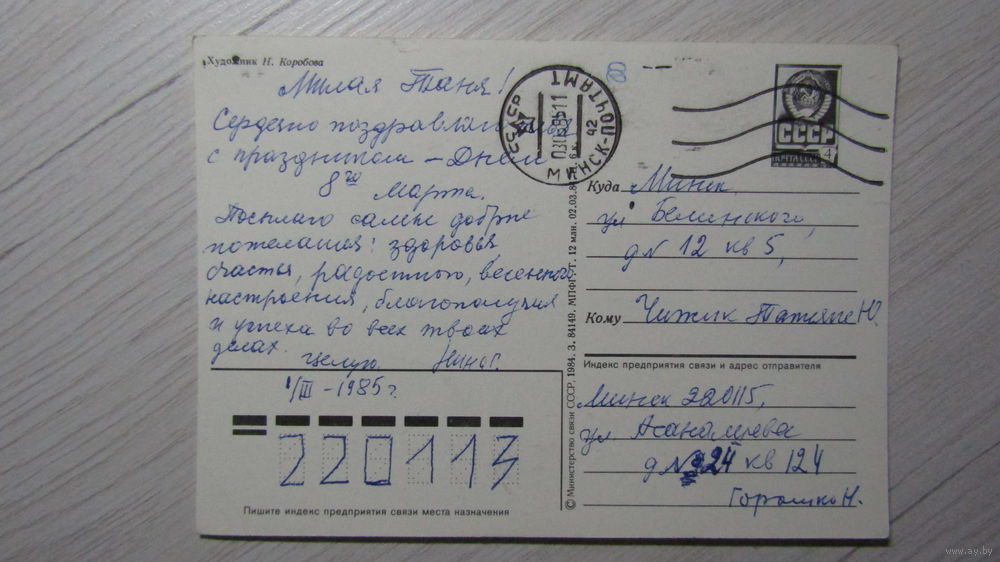 Художник Н. Коробова
Милая Таня!
Сердечно поздравляю
с праздником – Днем
8го Марта.
Посылаю самые добрые
пожелания: здоровья,
счастья, радостного, весеннего
настроения, благополучия
и успеха во всех твоих
делах.
Целую. Нина Г.
1/III – 1985 г.
220113
Пишите индекс предприятия связи места назначения
© Министерство связи СССР, 1984. З. 84149. МПФГ. Г. 12 млн. 02.03.84
6 к.
СССР
МИНСК-ПОЧТАМТ
92
СССР
ПОЧТА СССР
4
Куда Минск
ул Белинского,
д N 12 кв 5,
Кому Чижик Татьяне Ю.
Индекс предприятия связи и адрес отправителя
Минск 220115,
ул
д N 24 кв 124
Горошко Н.
www.ay.by